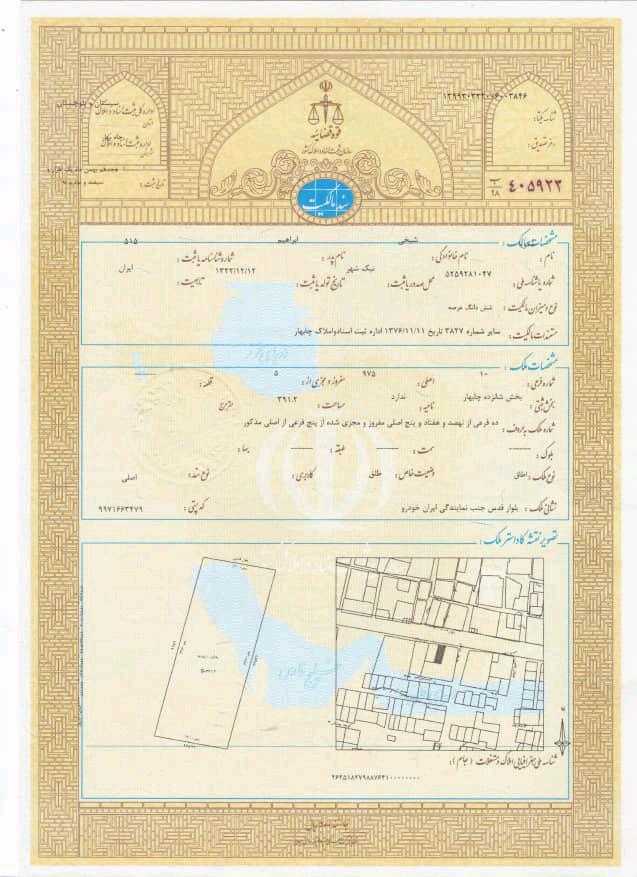 ۱۳۹۹۲۰۳۲۲۰۰۶۰۰۳۸۴۶
شناسه یکتا:
سیستان و بلوچستان
اداره کل ثبت اسناد و املاک
استان
اداره ثبت اسناد و املاک
شهرستان
دفتر تصدیق:
تاریخ ثبت:
قوه قضائیه
سازمان ثبت اسناد و املاک کشور
سند مالکیت
۴۰۵۹۲۳ ب/۹۸
مشخصات مالک:
نام: نام خانوادگی: شیخی نام پدر: ابراهیم شماره شناسنامه یا ثبت: ۵۱۵
شماره یا شناسه ملی: ۵۲۵۹۲۸۱۰۴۷ محل صدور یا ثبت: نیک شهر تاریخ تولد یا ثبت: ۱۳۲۲/۱۲/۱۲ تابعیت: ایران
نوع و میزان مالکیت: شش دانگ عرصه
مستندات مالکیت: سایر شماره ۳۸۲۷ تاریخ ۱۳۷۶/۱۱/۱۱ اداره ثبت اسنادواملاک چابهار
مشخصات ملک:
شماره فرعی: ۱۰ اصلی: ۹۷۵ مفروز و مجزی از: ۵ قطعه:
بخش ثبتی: بخش شانزده چابهار ناحیه: ندارد مساحت: ۳۹۱.۲ مترمربع
شماره ملک به حروف: ده فرعی از نهصد و هفتاد و پنج اصلی مفروز و مجزی شده از پنج فرعی از اصلی مذکور
بلوک: -------- سمت: -------- طبقه: --------
نوع ملک: اطاق وضعیت خاص: طلق کاربری: نوع سند: اصلی
نشانی ملک: بلوار قدس جنب نمایندگی ایران خودرو کد پستی: ۹۹۷۱۶۶۳۴۷۹
تصویر نقشه کاداستر ملک:
شناسه ملی جغرافیایی املاک و مستغلات (جام):
۲۶۲۵۱۸۲۷۹۸۸۷۶۲۱۰۰۰۰۰۰۰۰